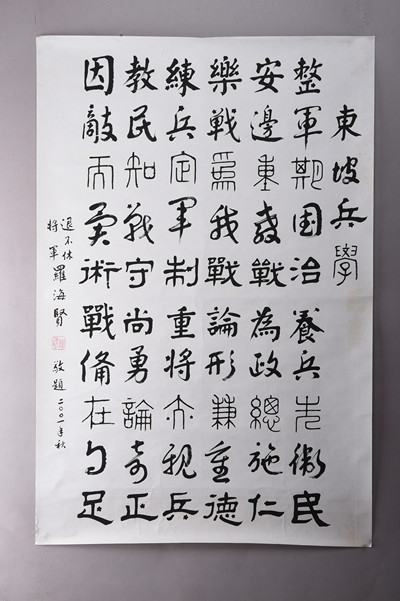 東坡兵學
整軍期國治養兵先衛民
安邊重教戰為政總施仁
樂戰爲我戰論形兼重德
練兵定軍制重將亦視兵
教民知戰守尚勇論奇正
因敵而異術戰備在勻足
退不休
將軍羅海賢敬題二〇〇一年秋